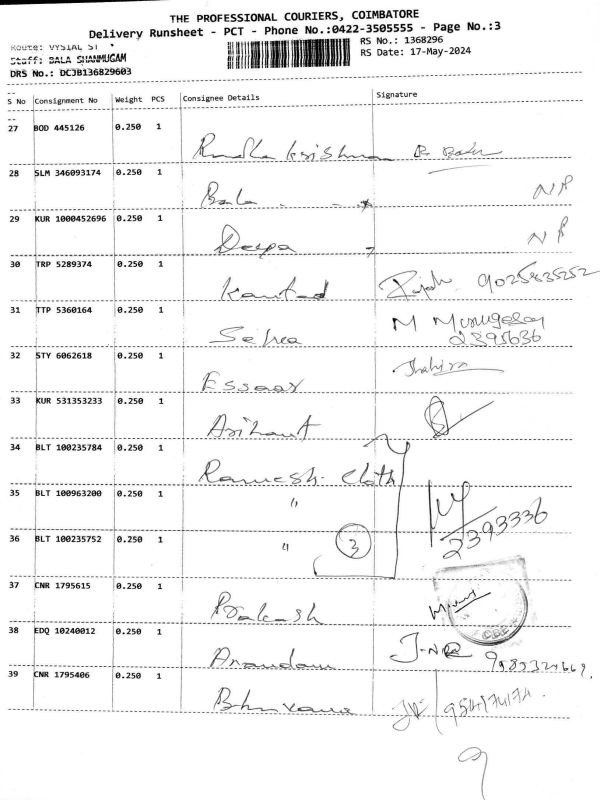 THE PROFESSIONAL COURIERS, COIMBATORE
Delivery Runsheet - PCT - Phone No.:0422-3505555 - Page No.:3
Route: VYSIAL ST
RS No.: 1368296
Staff: BALA SHANMUGAM
RS Date: 17-May-2024
DRS No.: DCJB136829603
S No Consignment No Weight PCS Consignee Details Signature
27 BOD 445126 0.250 1
28 SLM 346093174 0.250 1 Bala NP
29 KUR 1000452696 0.250 1 Deepa NP
30 TRP 5289374 0.250 1 9025835252
31 TTP 5360164 0.250 1 M Murugesan
2395636
32 STY 6062618 0.250 1 Essaar
33 KUR 531353233 0.250 1 Arihant
34 BLT 100235784 0.250 1 Ramesh Cloth
35 BLT 100963200 0.250 1 "
36 BLT 100235752 0.250 1 " 3 2393336
37 CNR 1795615 0.250 1 Prakash
CBE
38 EDQ 10240012 0.250 1
39 CNR 1795406 0.250 1